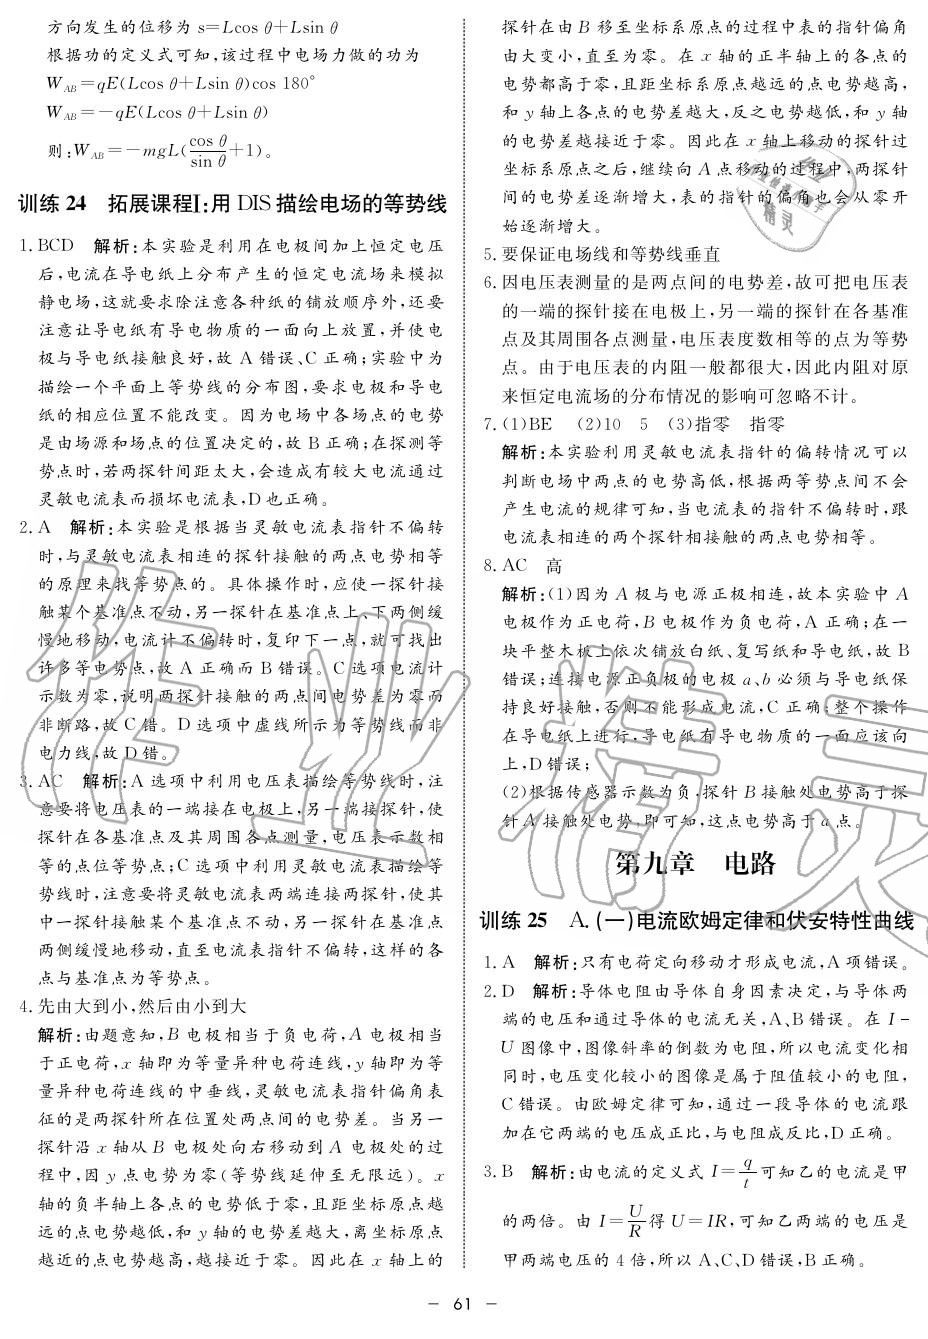 方向发生的位移为 s=Lcos θ+Lsin θ
根据功的定义式可知,该过程中电场力做的功为
W_AB=qE(Lcos θ+Lsin θ)cos 180°
W_AB=-qE(Lcos θ+Lsin θ)
则:W_AB=-mgL(cos θ/sin θ+1)。
训练 24 拓展课程Ⅰ:用 DIS 描绘电场的等势线
1. BCD 解析:本实验是利用在电极间加上恒定电压
后,电流在导电纸上分布产生的恒定电流场来模拟
静电场,这就要求除注意各种纸的铺放顺序外,还要
注意让导电纸有导电物质的一面向上放置,并使电
极与导电纸接触良好,故 A 错误、C 正确;实验中为
描绘一个平面上等势线的分布图,要求电极和导电
纸的相应位置不能改变。因为电场中各场点的电势
是由场源和场点的位置决定的,故 B 正确;在探测等
势点时,若两探针间距太大,会造成有较大电流通过
灵敏电流表而损坏电流表,D 也正确。
2. A 解析:本实验是根据当灵敏电流表指针不偏转
时,与灵敏电流表相连的探针接触的两点电势相等
的原理来找等势点的。具体操作时,应使一探针接
触某个基准点不动,另一探针在基准点上、下两侧缓
慢地移动,电流计不偏转时,复印下一点,就可找出
许多等电势点,故 A 正确而 B 错误。C 选项电流计
示数为零,说明两探针接触的两点间电势差为零而
非断路,故 C 错。D 选项中虚线所示为等势线而非
电力线,故 D 错。
3. AC 解析:A 选项中利用电压表描绘等势线时,注
意要将电压表的一端接在电极上,另一端接探针,使
探针在各基准点及其周围各点测量,电压表示数相
等的点位等势点;C 选项中利用灵敏电流表描绘等
势线时,注意要将灵敏电流表两端连接两探针,使其
中一探针接触某个基准点不动,另一探针在基准点
两侧缓慢地移动,直至电流表指针不偏转,这样的各
点与基准点为等势点。
4. 先由大到小,然后由小到大
解析:由题意知,B 电极相当于负电荷,A 电极相当
于正电荷,x 轴即为等量异种电荷连线,y 轴即为等
量异种电荷连线的中垂线,灵敏电流表指针偏角表
征的是两探针所在位置处两点间的电势差。当另一
探针沿 x 轴从 B 电极处向右移动到 A 电极处的过
程中,因 y 点电势为零(等势线延伸至无限远)。x
轴的负半轴上各点的电势低于零,且距坐标原点越
远的点电势越低,和 y 轴的电势差越大,离坐标原点
越近的点电势越高,越接近于零。因此在 x 轴上的
探针在由 B 移至坐标系原点的过程中表的指针偏角
由大变小,直至为零。在 x 轴的正半轴上的各点的
电势都高于零,且距坐标系原点越远的点电势越高,
和 y 轴上各点的电势差越大,反之电势越低,和 y 轴
的电势差越接近于零。因此在 x 轴上移动的探针过
坐标系原点之后,继续向 A 点移动的过程中,两探针
间的电势差逐渐增大,表的指针的偏角也会从零开
始逐渐增大。
5. 要保证电场线和等势线垂直
6. 因电压表测量的是两点间的电势差,故可把电压表
的一端的探针接在电极上,另一端的探针在各基准
点及其周围各点测量,电压表度数相等的点为等势
点。由于电压表的内阻一般都很大,因此内阻对原
来恒定电流场的分布情况的影响可忽略不计。
7. (1)BE (2)10 5 (3)指零 指零
解析:本实验利用灵敏电流表指针的偏转情况可以
判断电场中两点的电势高低,根据两等势点间不会
产生电流的规律可知,当电流表的指针不偏转时,跟
电流表相连的两个探针相接触的两点电势相等。
8. AC 高
解析:(1)因为 A 极与电源正极相连,故本实验中 A
电极作为正电荷,B 电极作为负电荷,A 正确;在一
块平整木板上依次铺放白纸、复写纸和导电纸,故 B
错误;连接电源正负极的电极 a、b 必须与导电纸保
持良好接触,否则不能形成电流,C 正确;整个操作
在导电纸上进行,导电纸有导电物质的一面应该向
上,D 错误;
(2)根据传感器示数为负,探针 B 接触处电势高于探
针 A 接触处电势,即可知,这点电势高于 a 点。
第九章 电路
训练 25 A.(一)电流欧姆定律和伏安特性曲线
1. A 解析:只有电荷定向移动才形成电流,A 项错误。
2. D 解析:导体电阻由导体自身因素决定,与导体两
端的电压和通过导体的电流无关,A、B 错误。在 I-
U 图像中,图像斜率的倒数为电阻,所以电流变化相
同时,电压变化较小的图像是属于阻值较小的电阻,
C 错误。由欧姆定律可知,通过一段导体的电流跟
加在它两端的电压成正比,与电阻成反比,D 正确。
3. B 解析:由电流的定义式 I=q/t 可知乙的电流是甲
的两倍。由 I=U/R 得 U=IR,可知乙两端的电压是
甲两端电压的 4 倍,所以 A、C、D 错误,B 正确。
- 61 -
作业精灵